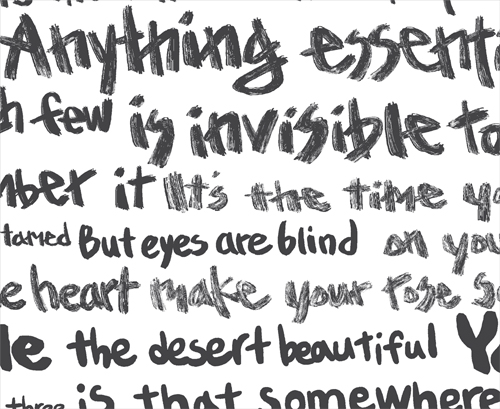 Anything essent
h few is invisible to
mber it It's the time yo
tamed But eyes are blind on you
e heart make your rose s
le the desert beautiful Yo
three is that somewhere